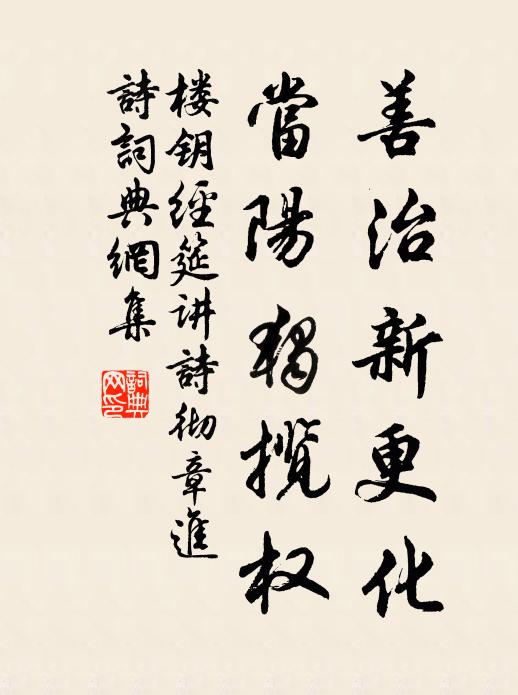 善治新更化
當陽獨攬权
楼钥經筵讲詩彻章進
詩詞典網集
詞典网印